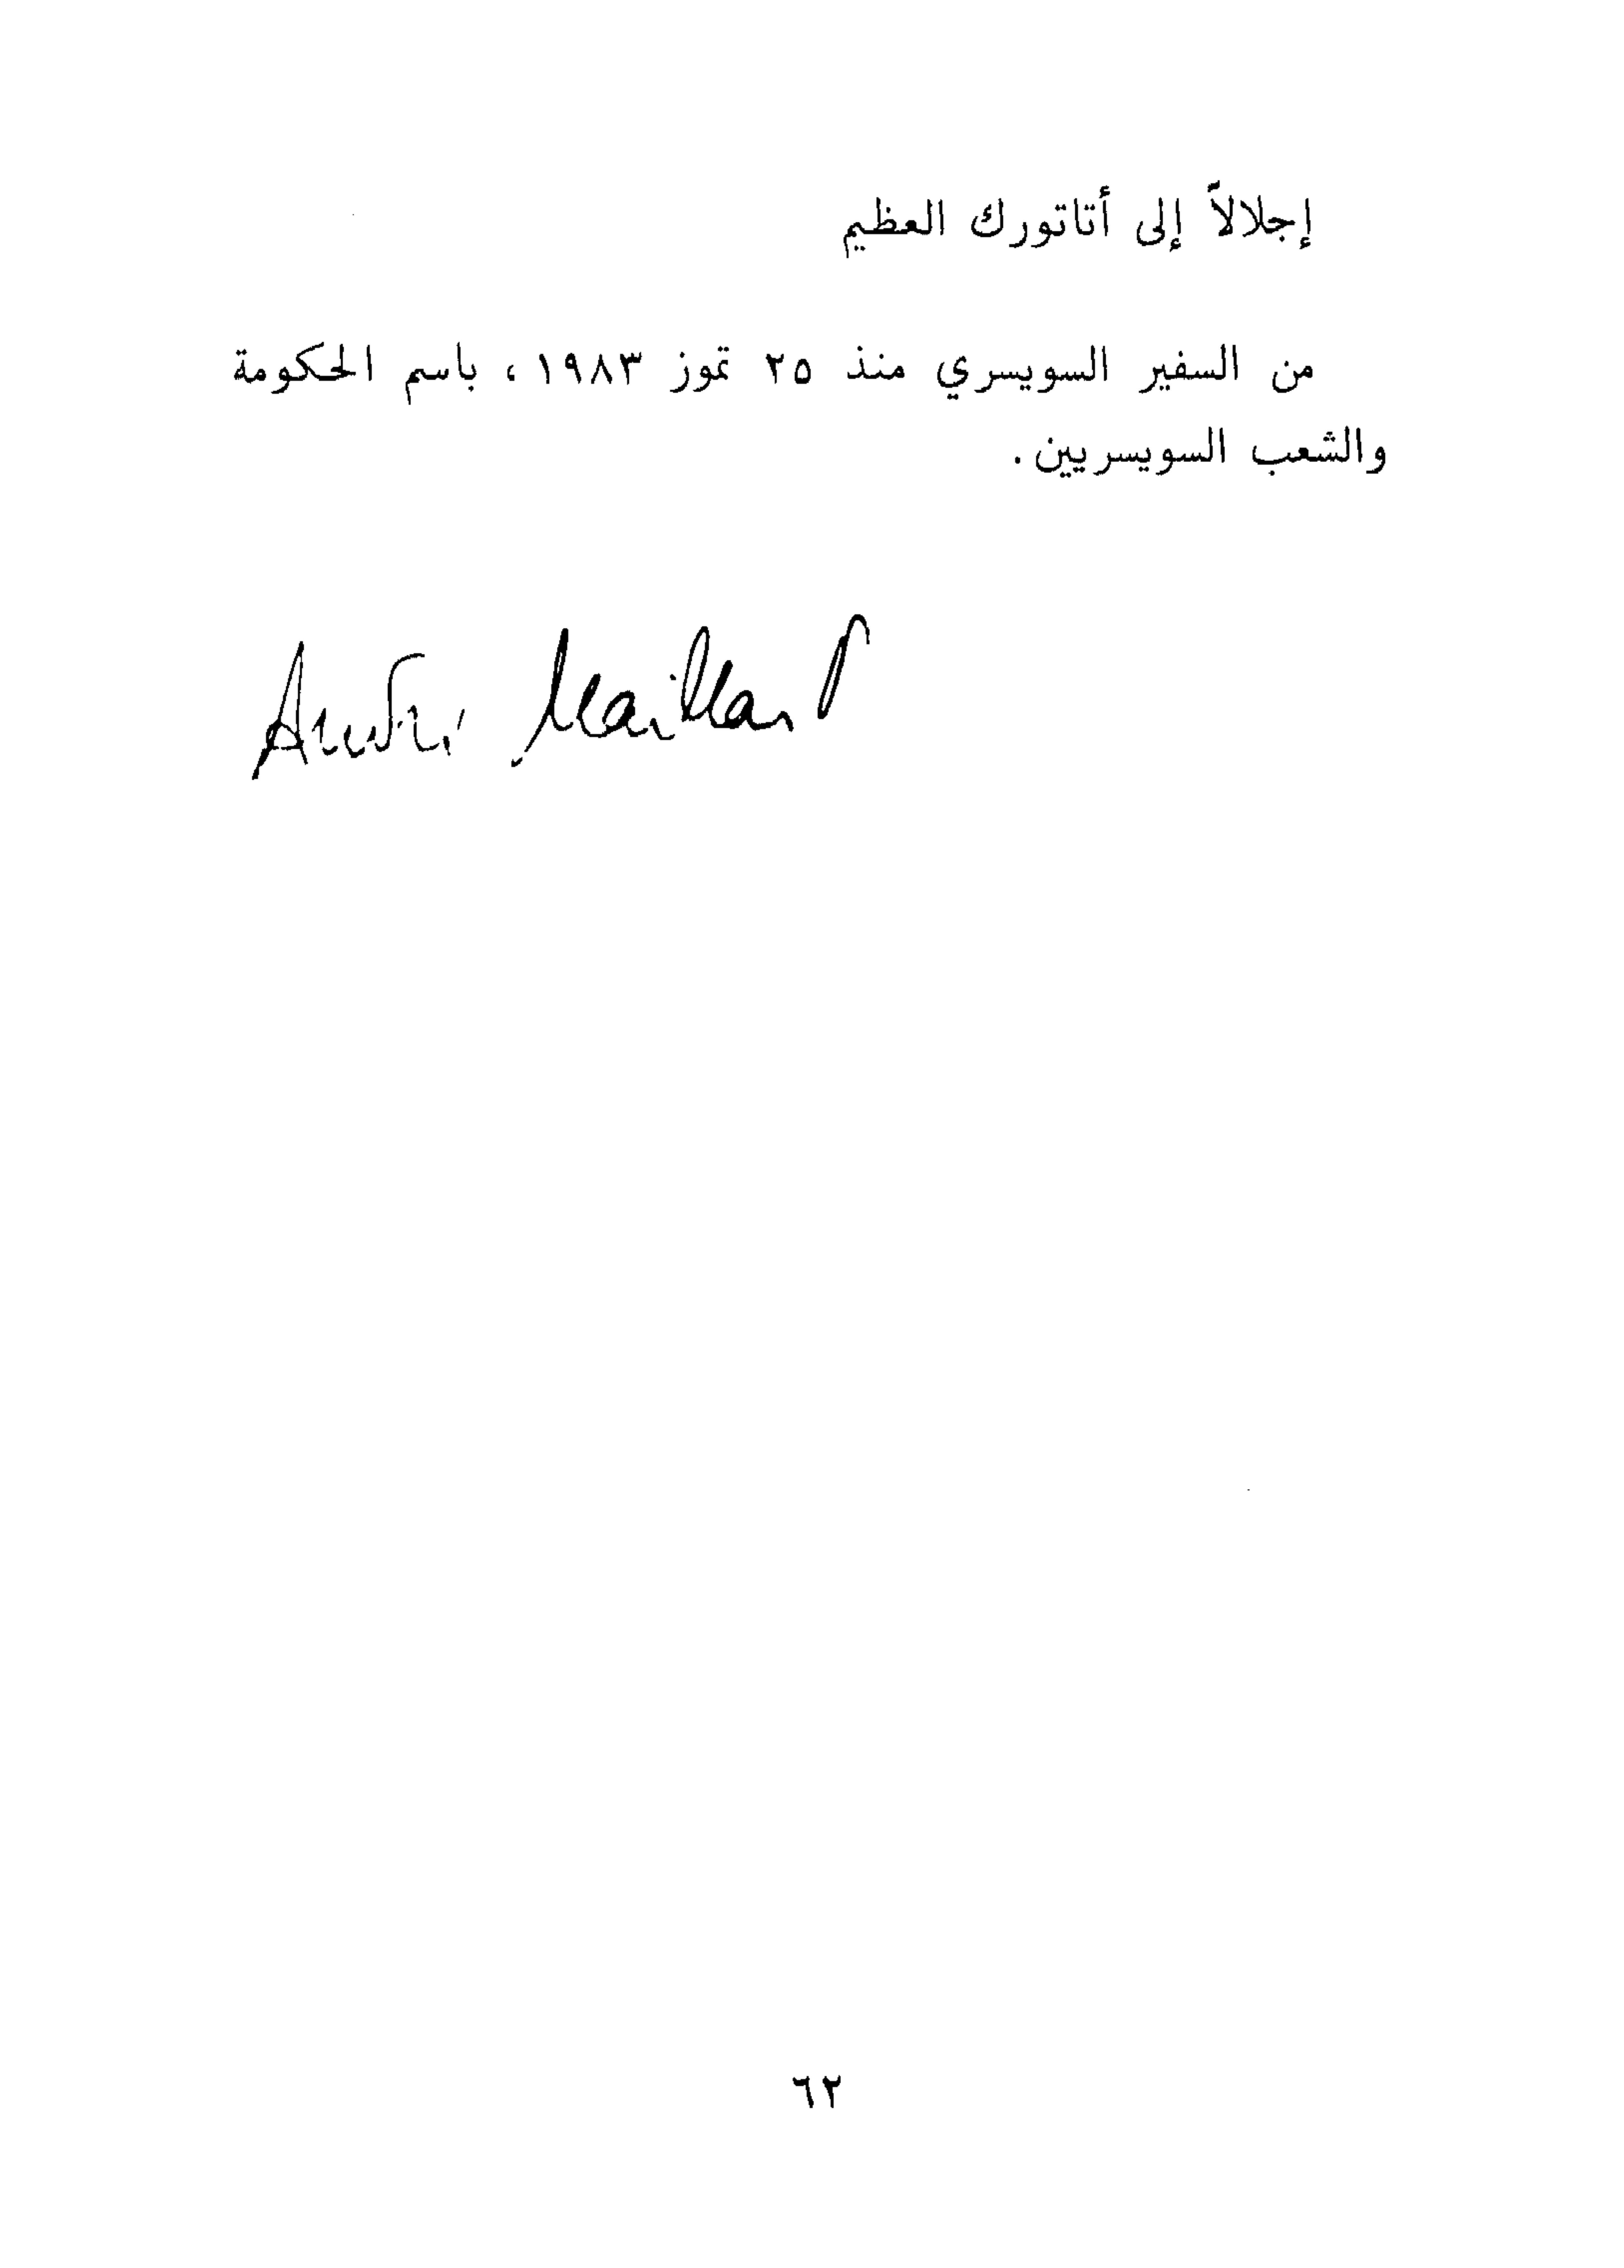 إجلالاً إلى أتاتورك العظيم
من السفير السويسري منذ ٢٥ تموز ١٩٨٣ ، باسم الحكومة
والشعب السويسريين .
André Maillard
٦٢